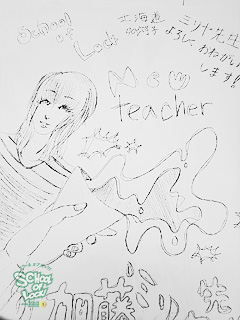 School
of
Lock
北海道
ミリヤ先生
よろしくおねがい
します!
New
teacher
School
of
Lock!
加藤ミリヤ先